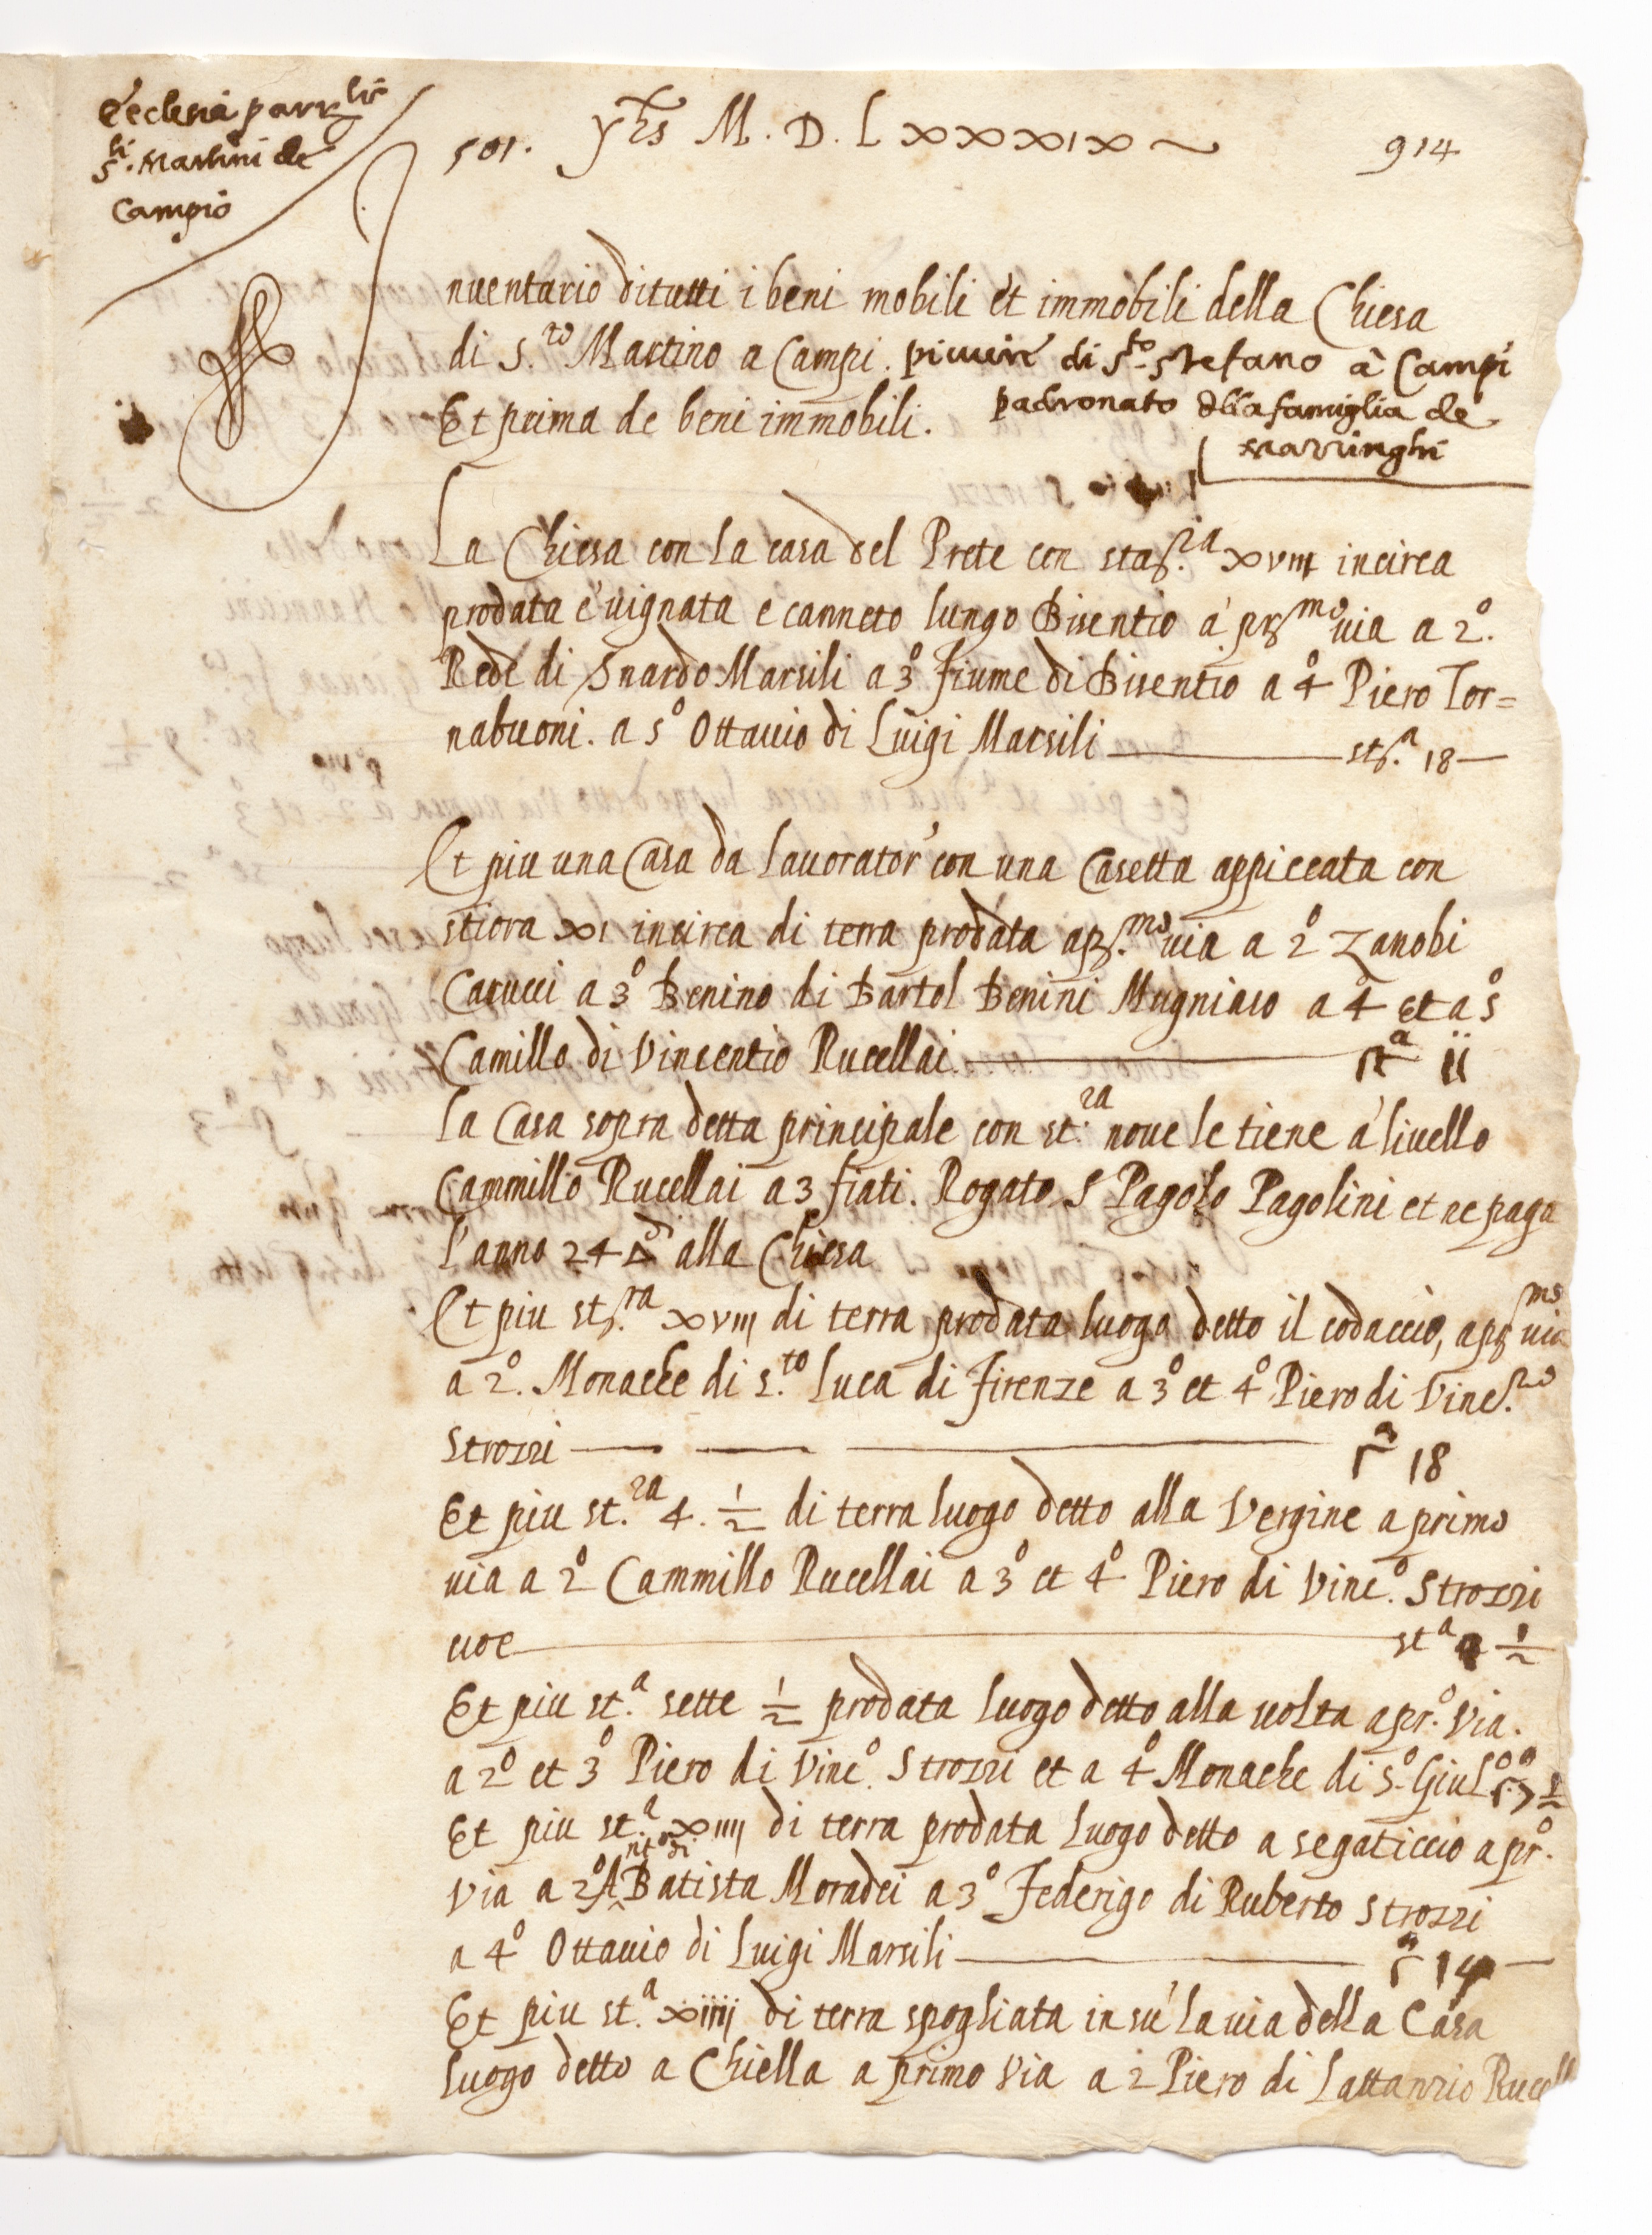 Ecclesia parr.lis
S.ti Martini de
Campio
501. yhs M. D. L xxxxix 914
Inventario di tutti i beni mobili et immobili della Chiesa
di S.to Martino a Campi. piuiere di S.to Stefano à Campi
Et prima de beni immobili. padronato della famiglia de
Marringhi
La Chiesa con la casa del Prete con sta.ra xviii incirca
prodata e uignata e canneto lungo Bisentio a pr.mo uia a 2.o
Rede di Snardo Marsili a 3o fiume di Bisentio a 4o Piero Tor=
nabuoni. a 5o Ottauio di Luigi Marsili st.a 18
Et piu una Casa da Lauorator' con una Casetta appiccata con
stiora xi incirca di terra prodata a pr.mo uia a 2o Zanobi
Carucci a 3o Benino di Bartol Benini Mugniaio a 4o et a 5o
Camillo di Vincentio Rucellai st.a 11
la Casa sopra detta principale con st.ra noue le tiene a liuello
Cammillo Rucellai a 3 fiati. Rogato S Pagolo Pagolini et ne paga
l'anno 24 alla Chiesa
Et piu st.ra xviii di terra prodata luogo detto il codaccio, a pr.mo uia
a 2.o Monache di S.to Luca di Firenze a 3o et 4o Piero di Vinc.zo
Strozzi st.a 18
Et piu st.ra 4. 1/2 di terra luogo detto alla Vergine a primo
uia a 2o Cammillo Rucellai a 3o et 4o Piero di Vinc.o Strozzi
uoc st.a 4 1/2
Et piu st.a sette 1/2 prodata luogo detto alla uolta a pr.o Via.
a 2o et 3o Piero di Vinc.o Strozzi et a 4o Monache di S.o Giul.o st.a 7 1/2
Et piu st.a xiiii di terra prodata luogo detto a segaticcio a pr.o
Via a 2o Ant.o di Batista Moradei a 3o Federigo di Ruberto Strozzi
a 4o Ottauio di Luigi Marsili st.a 14
Et piu st.a xiiii di terra spogliata in su' la uia della Casa
luogo detto a Chiella a primo Via a 2 Piero di Lattanzio Rucell